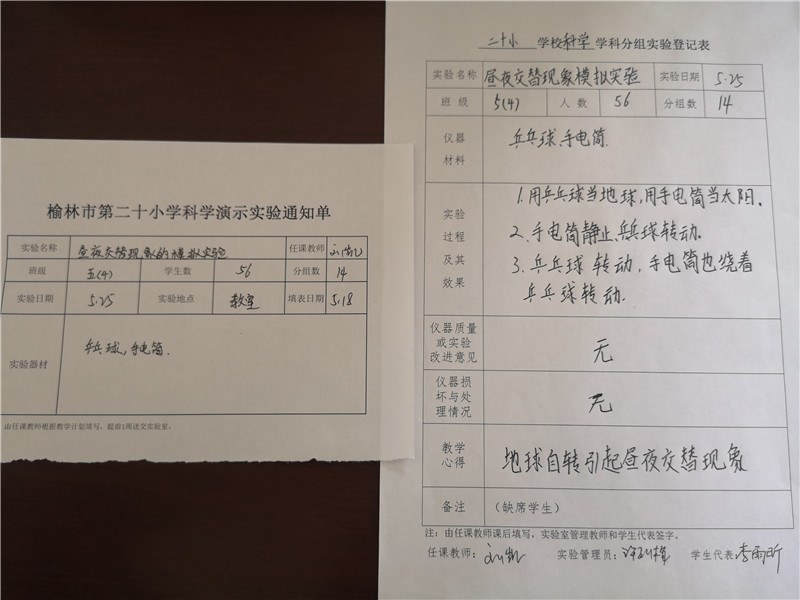 榆林市第二十小学科学演示实验通知单
实验名称 昼夜交替现象的模拟实验 任课教师 刘凯
班级 五(4) 学生数 56 分组数 14
实验日期 5.25 实验地点 教室 填表日期 5.18
实验器材 乒乓球,手电筒.
由任课教师根据教学计划填写,提前1周送交实验室。
二十小 学校科学学科分组实验登记表
实验名称 昼夜交替现象模拟实验 实验日期 5.25
班级 5(4) 人数 56 分组数 14
仪器材料 乒乓球、手电筒.
实验过程及其效果
1.用乒乓球当地球,用手电筒当太阳.
2.手电筒静止,乒乓球转动.
3.乒乓球转动,手电筒也绕着
乒乓球转动.
仪器质量或实验改进意见 无
仪器损坏与处理情况 无
教学心得 地球自转引起昼夜交替现象
备注 (缺席学生)
注:由任课教师课后填写,实验室管理教师和学生代表签字。
任课教师: 刘凯 实验管理员: 学生代表 李雨昕